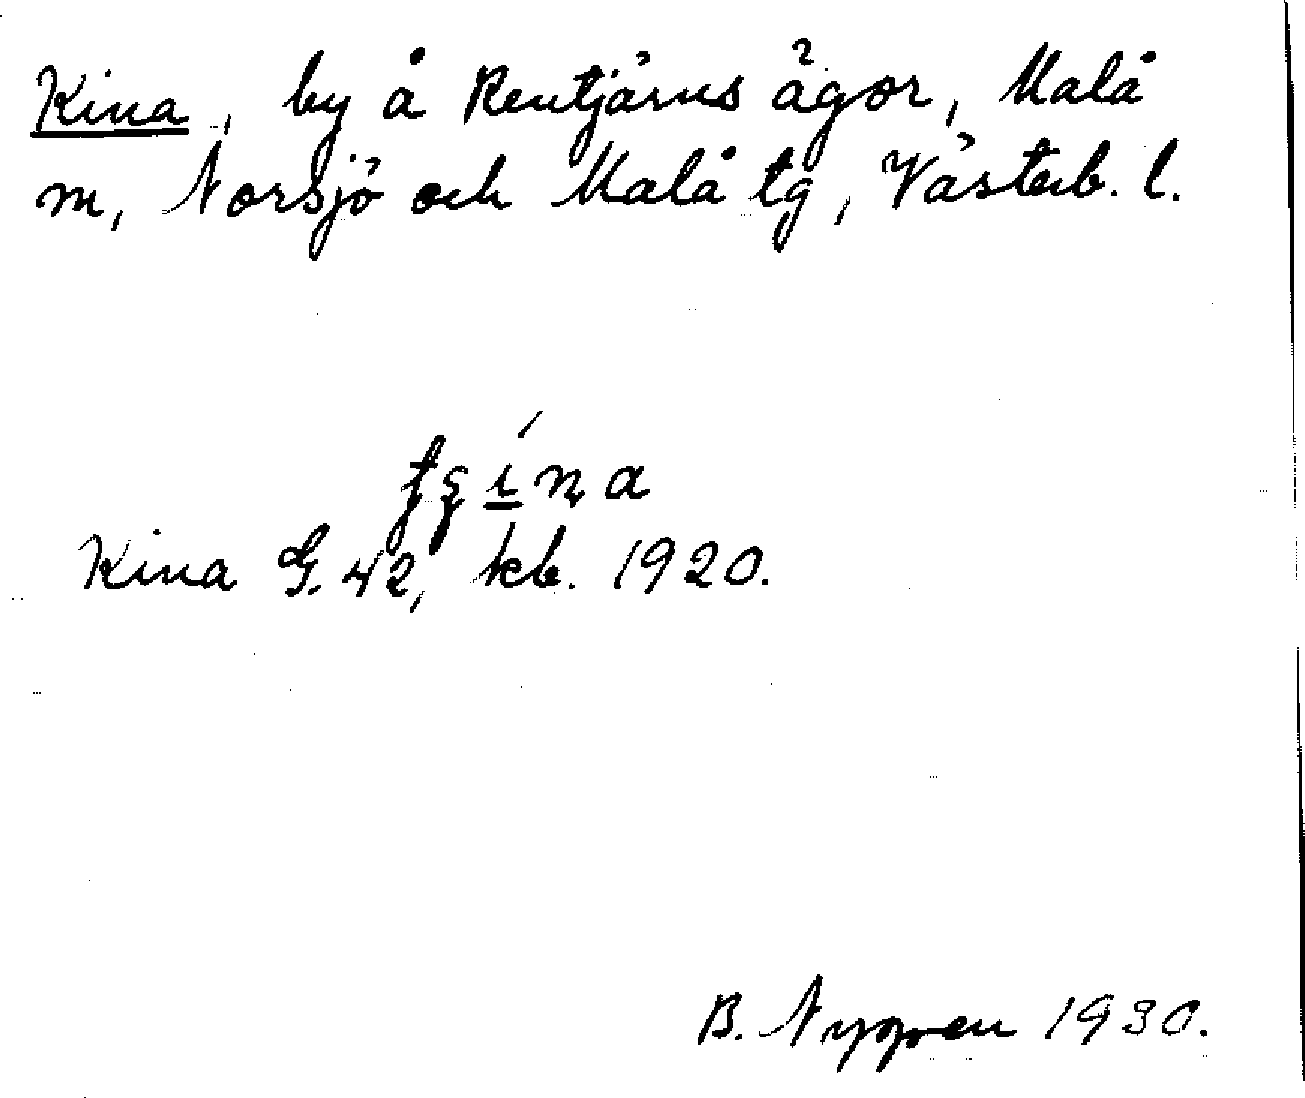 Kina, by å Rentjärns ägor, Malå
m, Norsjö och Malå tg, Västerb. l.
Kina G. 42, kb. 1920.
B. Nygren 1930.